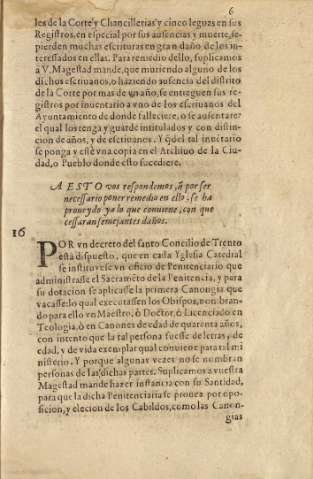 6
les de la Corte y Chancillerias y cinco leguas en sus
Registros, en especial por sus ausencias y muerte, se
pierden muchas escrituras en gran daño de los in-
teressados en ellas. Para remedio dello, suplicamos
a V. Magestad mande, que muriendo alguno de los
dichos escriuanos, o haziendo ausencia del distrito
de la Corte por mas de vn año, se entreguen sus re-
gistros por inuentario a vno de los escriuanos del
Ayuntamiento de donde falleciere, o se ausentare:
el qual los tenga y guarde intitulados y con distin-
cion de años, y de escriuanos. Y q̃ del tal inuẽtario
se ponga y estè vna copia en el Archiuo de la Ciu-
dad, o Pueblo donde esto sucediere.
A ESTO vos respondemos, q̃ por ser
necessario poner remedio en ello, se ha
proueydo ya lo que conuiene, con que
cessaran semejantes daños.
16
POR vn decreto del santo Concilio de Trento
està dispuesto, que en cada Yglesia Catedral
se instituyesse vn oficio de Penitenciario que
administrasse el Sacramẽto de la Penitencia, y para
su dotacion se aplicasse la primera Canongia que
vacasse: lo qual executassen los Obispos, nombran-
do para ello vn Maestro, ò Doctor, ò Licenciado en
Teologia, ò en Canones de edad de quarenta años,
con intento que la tal persona fuesse de letras, de
edad, y de vida exemplar qual conuiene para tal mi
nisterio. Y porque algunas vezes no se nombran
personas de las dichas partes. Suplicamos a vuestra
Magestad mande hazer instancia con su Santidad,
para que la dicha Penitenciaria se prouea por opo-
sicion, y elecion de los Cabildos, como las Canon-
gias